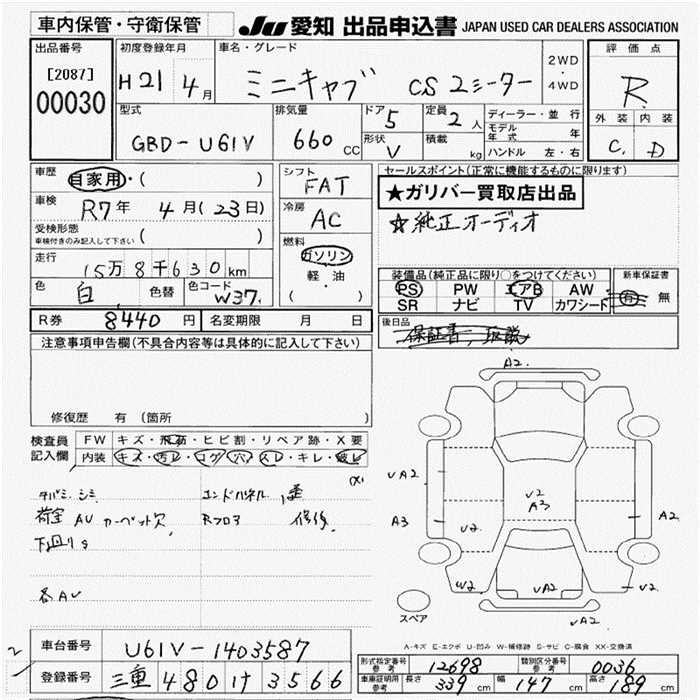 車内保管・守衛保管
JU 愛知 出品申込書 JAPAN USED CAR DEALERS ASSOCIATION
出品番号
[2087]
00030
初度登録年月
H21 4月
車名・グレード
ミニキャブ CS 2シーター
2WD
・
4WD
評価点
R
外装 内装
C D
型式
GBD-U61V
排気量
660 CC
ドア 5
形状 V
定員 2人
積載 kg
ディーラー・並行
モデル年式 年
ハンドル 左・右
車歴
自家用・( )
車検
R7年 4月(23日)
受検形態
車検付きのみ記入して下さい ( )
走行
15万8千630km
色 白 色替 色コード W37
シフト
FAT
冷房
AC
燃料
ガソリン
軽・油
( )
セールスポイント(正常に機能するものに限ります)
★ガリバー買取店出品
☆純正オーディオ
装備品(純正品に限り○をつけてください)
PS PW エアB AW
SR ナビ TV カワシート
新車保証書
有 無
後日品
保証書, 取説
R券 8440円 名変期限 月 日
注意事項申告欄(不具合内容等は具体的に記入して下さい)
修復歴 有 (箇所
検査員記入欄
FW キズ・飛石・ヒビ割・リペア跡・X要
内装 キズ・汚レ・コゲ・穴・スレ・キレ・破レ
タバコ シミ
荷室 AU カーペット欠
下廻りS
各AU
エンドパネル
Rフロア 修復
A2
UA2
A3
U2
W2
U2
A3
A2
U2
UA2
U2
UA2
スペア
A-キズ E-エクボ U-凹み W-補修跡 S-サビ C-腐食 XX-交換済
車台番号 U61V-1403587
登録番号 三重 480 け 3566
2
形式指定番号 参考 12698 類別区分番号 参考 0036
車庫証明用 参考 長さ 339cm 幅 147cm 高さ 189cm